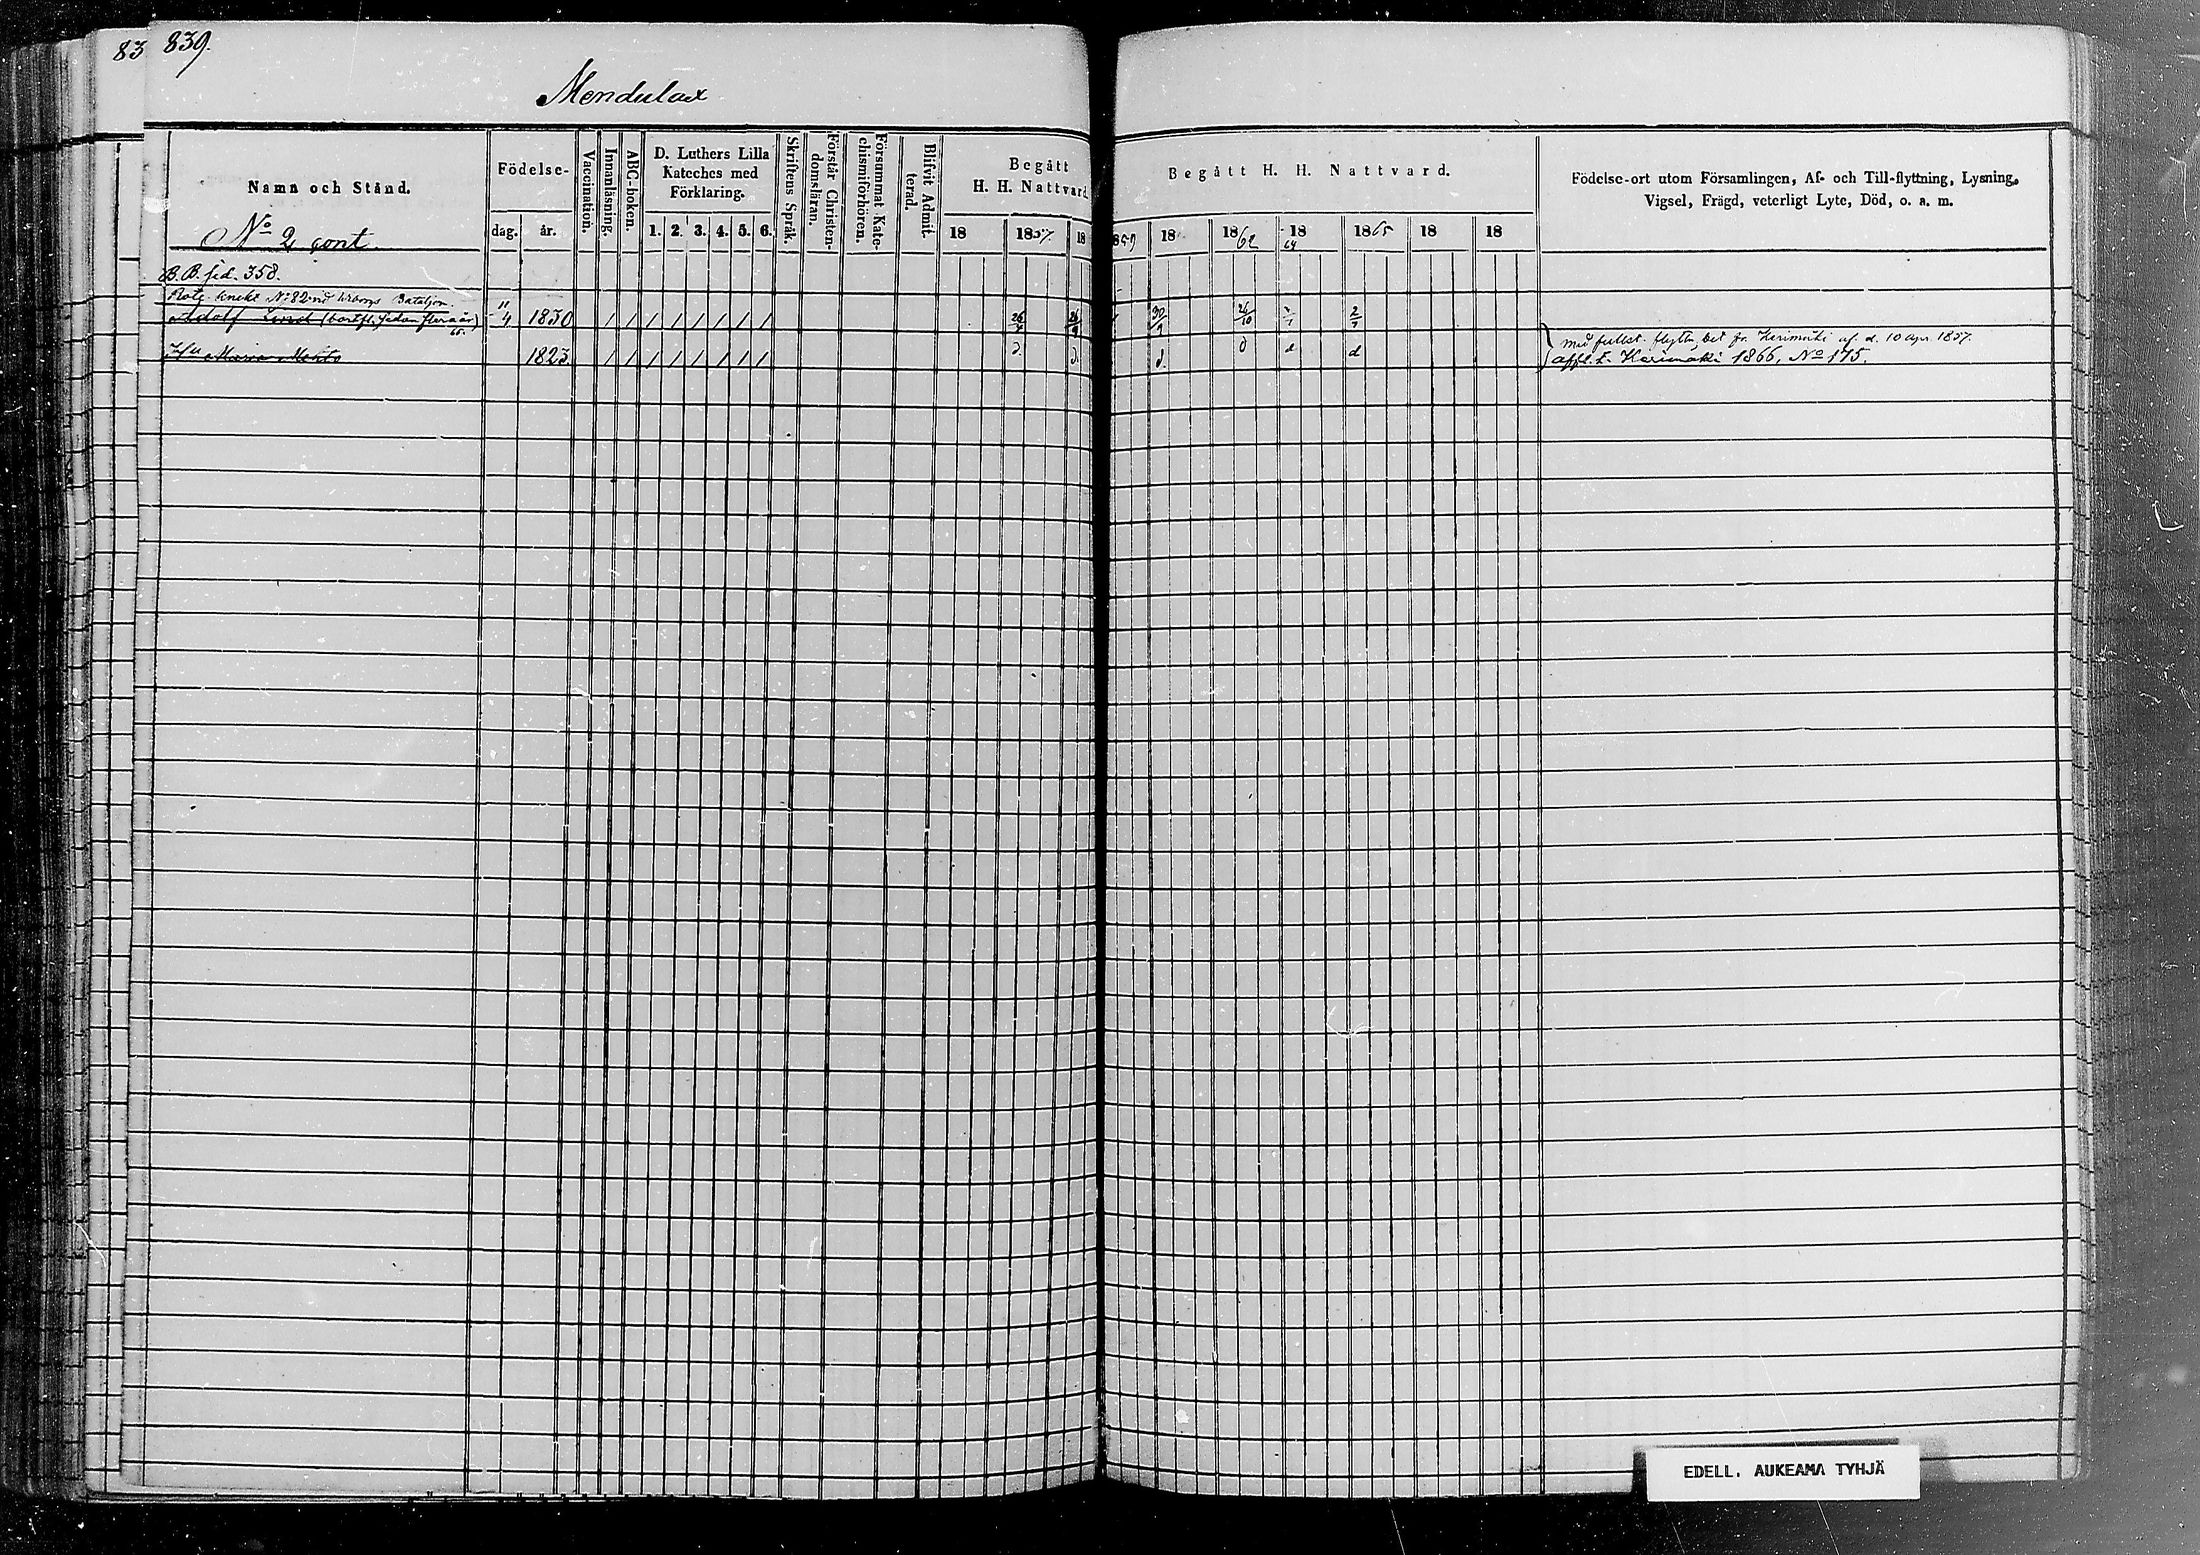 83 839.
Mendulax
Namn och Stånd.
Födelse-
dag. år.
Vaccination.
Innanläsning.
ABC-boken.
D. Luthers Lilla
Kateches med
Förklaring.
1. 2. 3. 4. 5. 6.
Skriftens Språk.
Förstår Christen-
domsläran.
Försummat Kate-
chismiförhören.
Blifvit Admit-
terad.
Begått
H. H. Nattvard
18 1857. 18
Begått H. H. Nattvard.
859 18 1862 1864 1865 18 18
Födelse-ort utom Församlingen, Af- och Till-flyttning, Lysning,
Vigsel, Frägd, veterligt Lyte, Död, o. a. m.
No 2 cont.
B. B. sid. 358.
Rote knekt No 82 vid Wiborgs Bataljon.
Adolf Lind (bortfl. sedan flera år) 11/4 1830 / / / / / / / / 26/4 26/9 30/9 26/10 2/7
65.
Hu Maria 1823 / / / / / / / / d. d. d. d d d
med fullst. flyttn. bet fr. Kerimäki af d. 10 Apr. 1857.
affl. t. Kerimäki 1866, No 175.
EDELL. AUKEAMA TYHJÄ